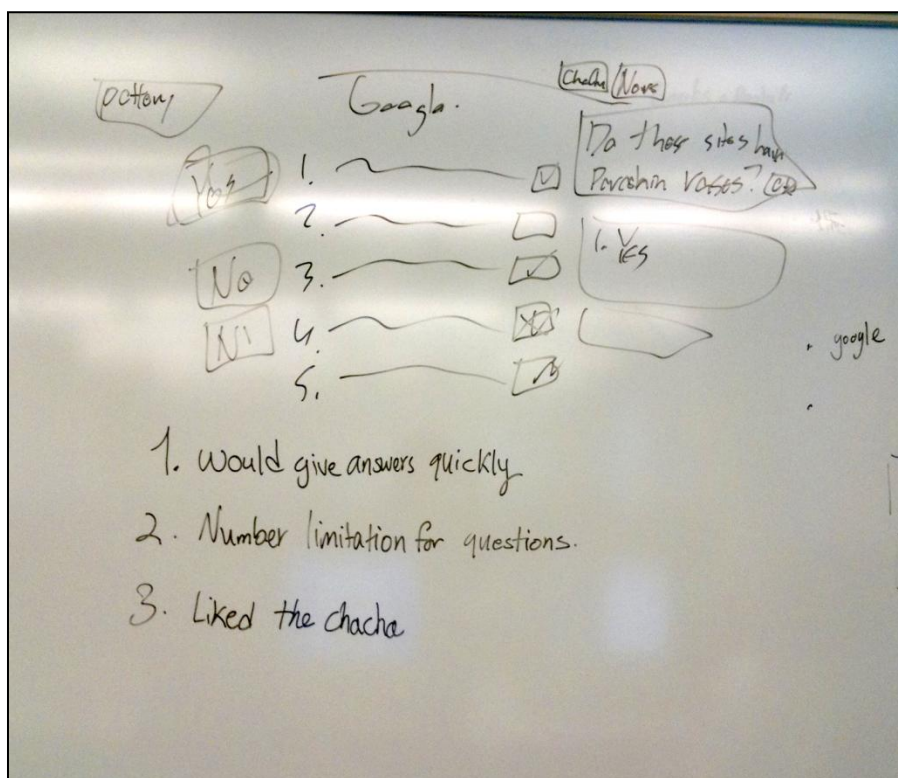 pottery
Google.
ChaCha
Yes
No
1.
2.
3.
4.
5.
Do these sites have
Porcelain Vases?
1. Yes
google
1. Would give answers quickly
2. Number limitation for questions.
3. Liked the chacha